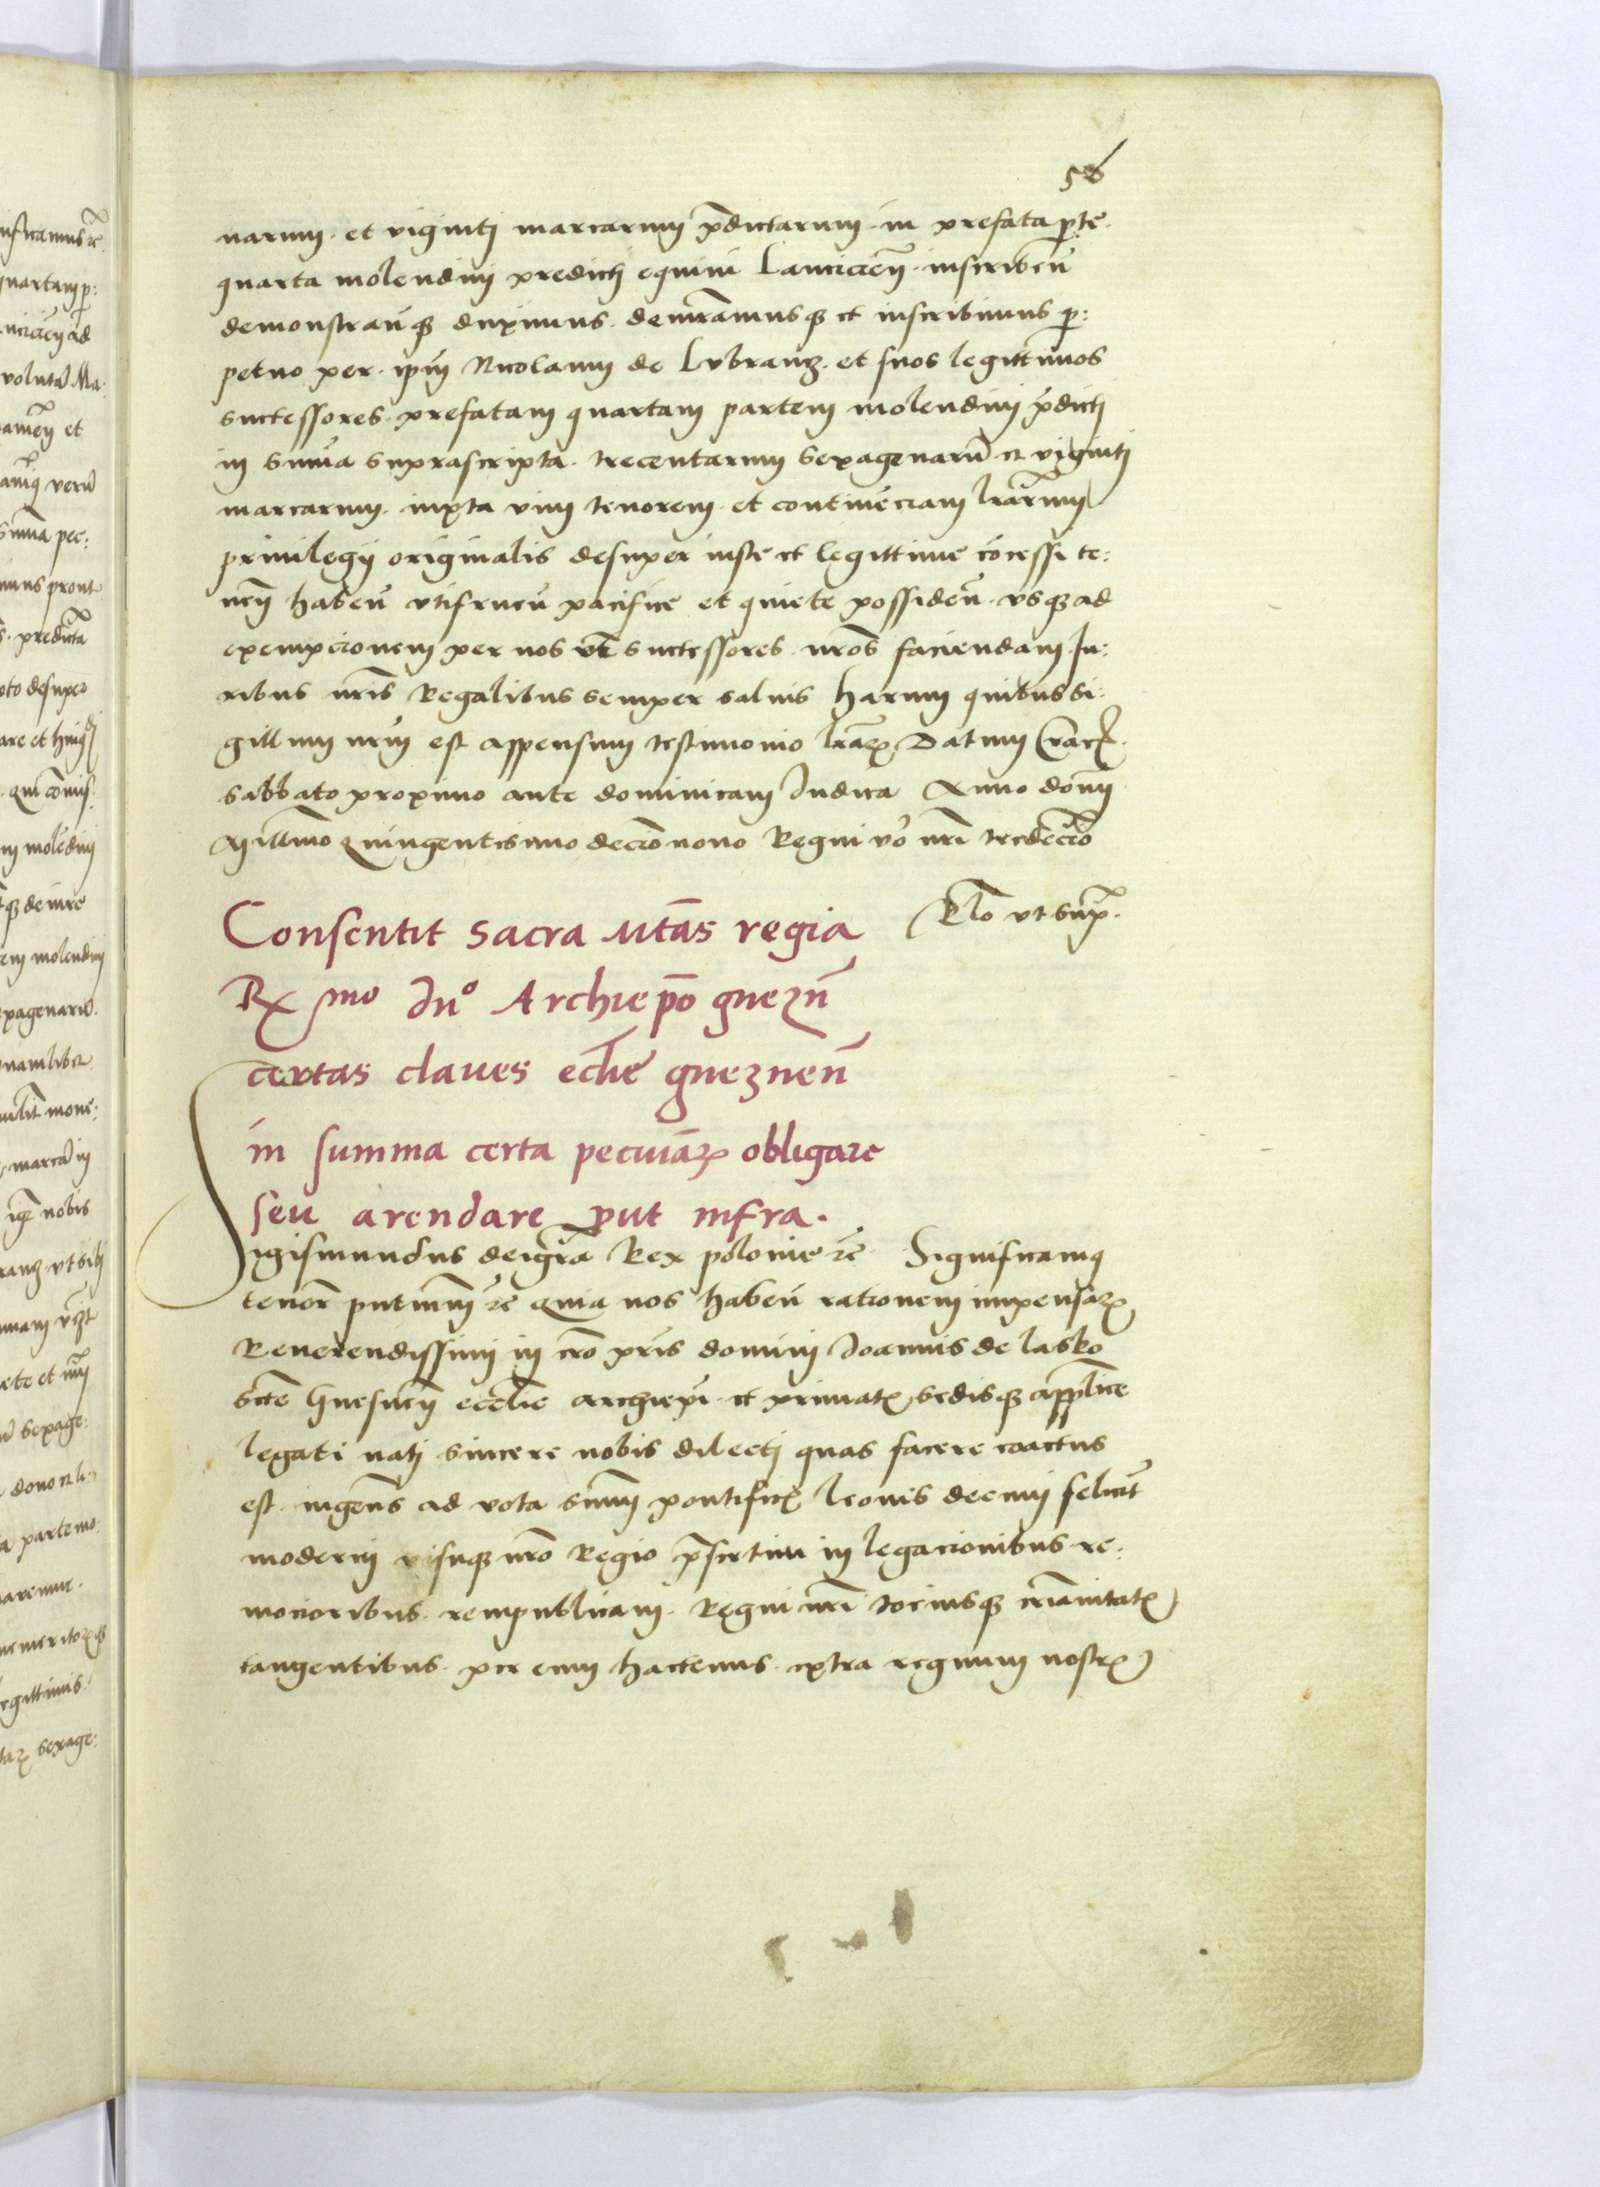 56
narum et viginti marcarum p̄dictarum in prefata p̄te
quarta molendini predicti equini Lancicień inscribeñ
demonstrañqꝫ duximus demr̄amusqꝫ et inscribimus p̲:
petuo per ip̄m Nicolaum de Lubrancz et suos legittimos
successores prefatam quartam partem molendini p̄dicti
in sum̄a suprascripta trecentarum sexagenarū et viginti
marcarum iuxta vim tenorem et continenciam lr̄arum
priuilegij originalis desuper iuste et legittime cōcessi te:
neñ habeñ vtifrueñ pacifice et quiete possideñ vsqꝫ ad
exempcionem per nos vel successores nr̄os faciendam Iu:
ribus nr̄is Regalibus semper saluis harum quibus si:
gillum nr̄m est appensum testimonio lr̄arꝫ Datum Crac̄
sabbato proximo ante dominicam Iudica Anno domī
Millm̄o quingentesimo decīonono Regni v̄o nr̄i tredecīo
Rlō vt supꝫ
Consentit sacra Mtās regia
Rx̄mo Dn̄o Archiep̄o gnezn̄
certas claues eccl̄ie gneznen̄
in summa certa pecuniarꝫ obligare
seu arendare ꝓut infra
Sigismundus dei gr̄a Rex polonie ꝛc̄ Significamꝰ
tenore pn̄tium ꝛc̄ Quia nos habeñ rationem impensarꝫ
Reuerendissimi in xr̄o pr̄is domini Joannis de lasko
sc̄te Gnesneñ eccl̄ie archiep̄i et primatꝭ sedisqꝫ ap̄lice
legati nati sincere nobis dilecti quas facere coactus
est ingen̄s ad vota sum̄i pontificꝭ leonis decimi felicit̄
moderni iussuqꝫ nr̄o Regio p̄sertim in legacionibus re:
mocioribus rempublicam Regni nr̄i tociusqꝫ xr̄ianitatꝭ
tangentibus per eum hactenus extra regnum nostrꝫ